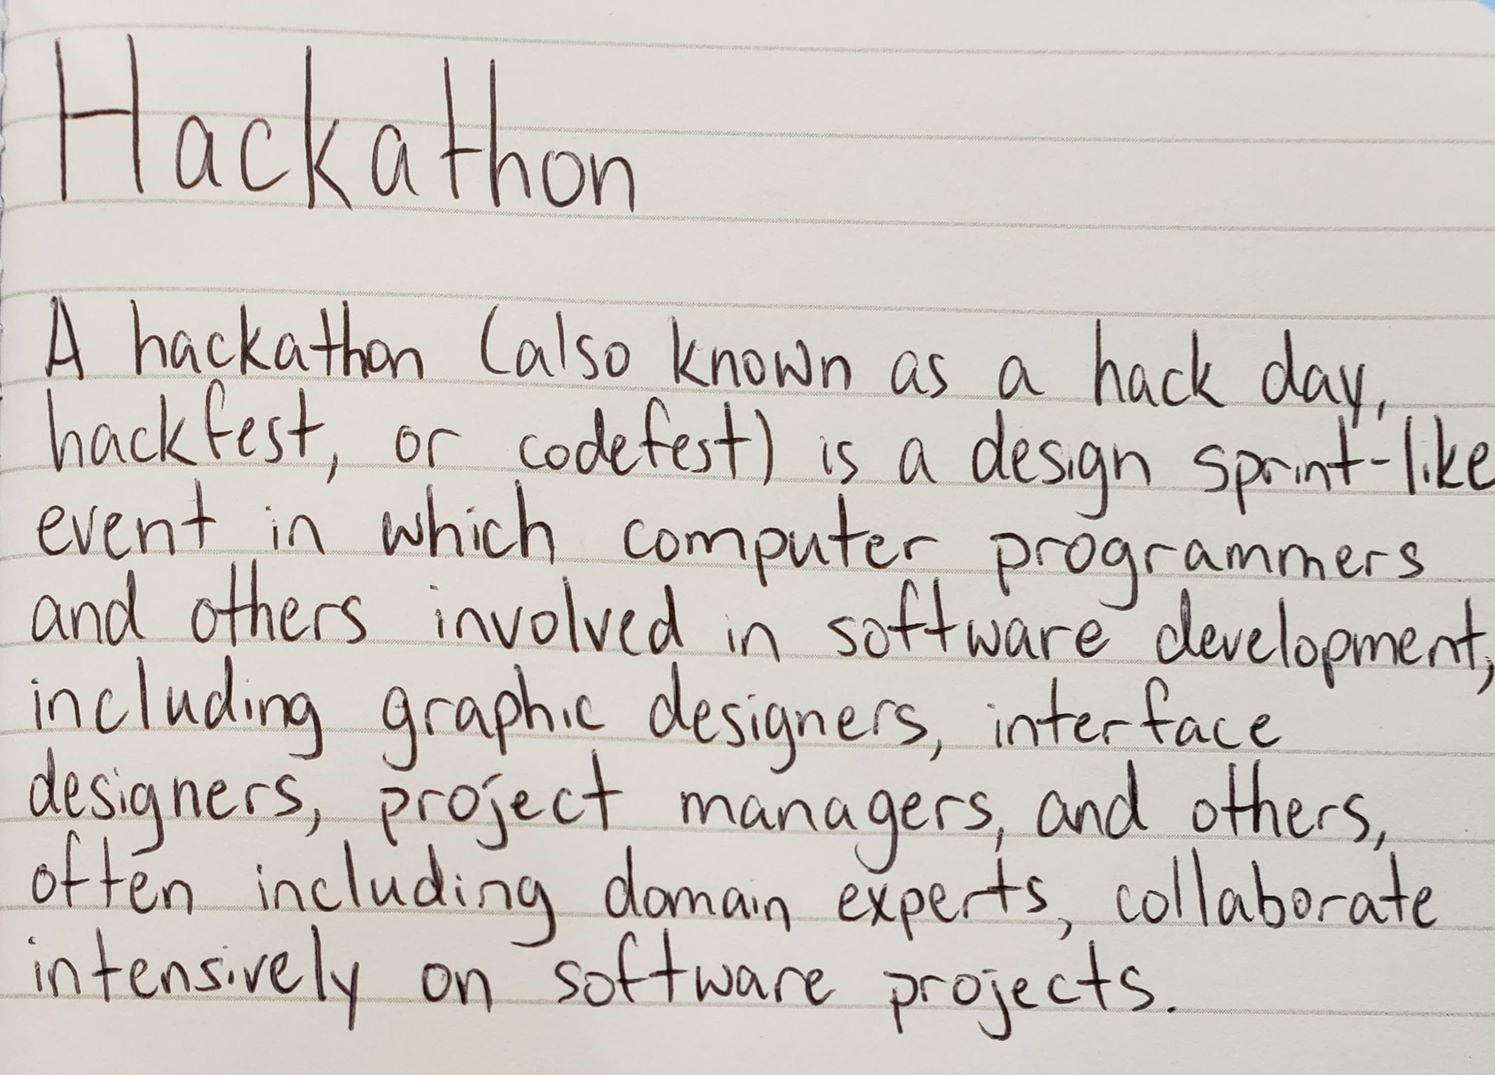 Hackathon
A hackathon (also known as a hack day,
hackfest, or codefest) is a design sprint-like
event in which computer programmers
and others involved in software development,
including graphic designers, interface
designers, project managers, and others,
often including domain experts, collaborate
intensively on software projects.